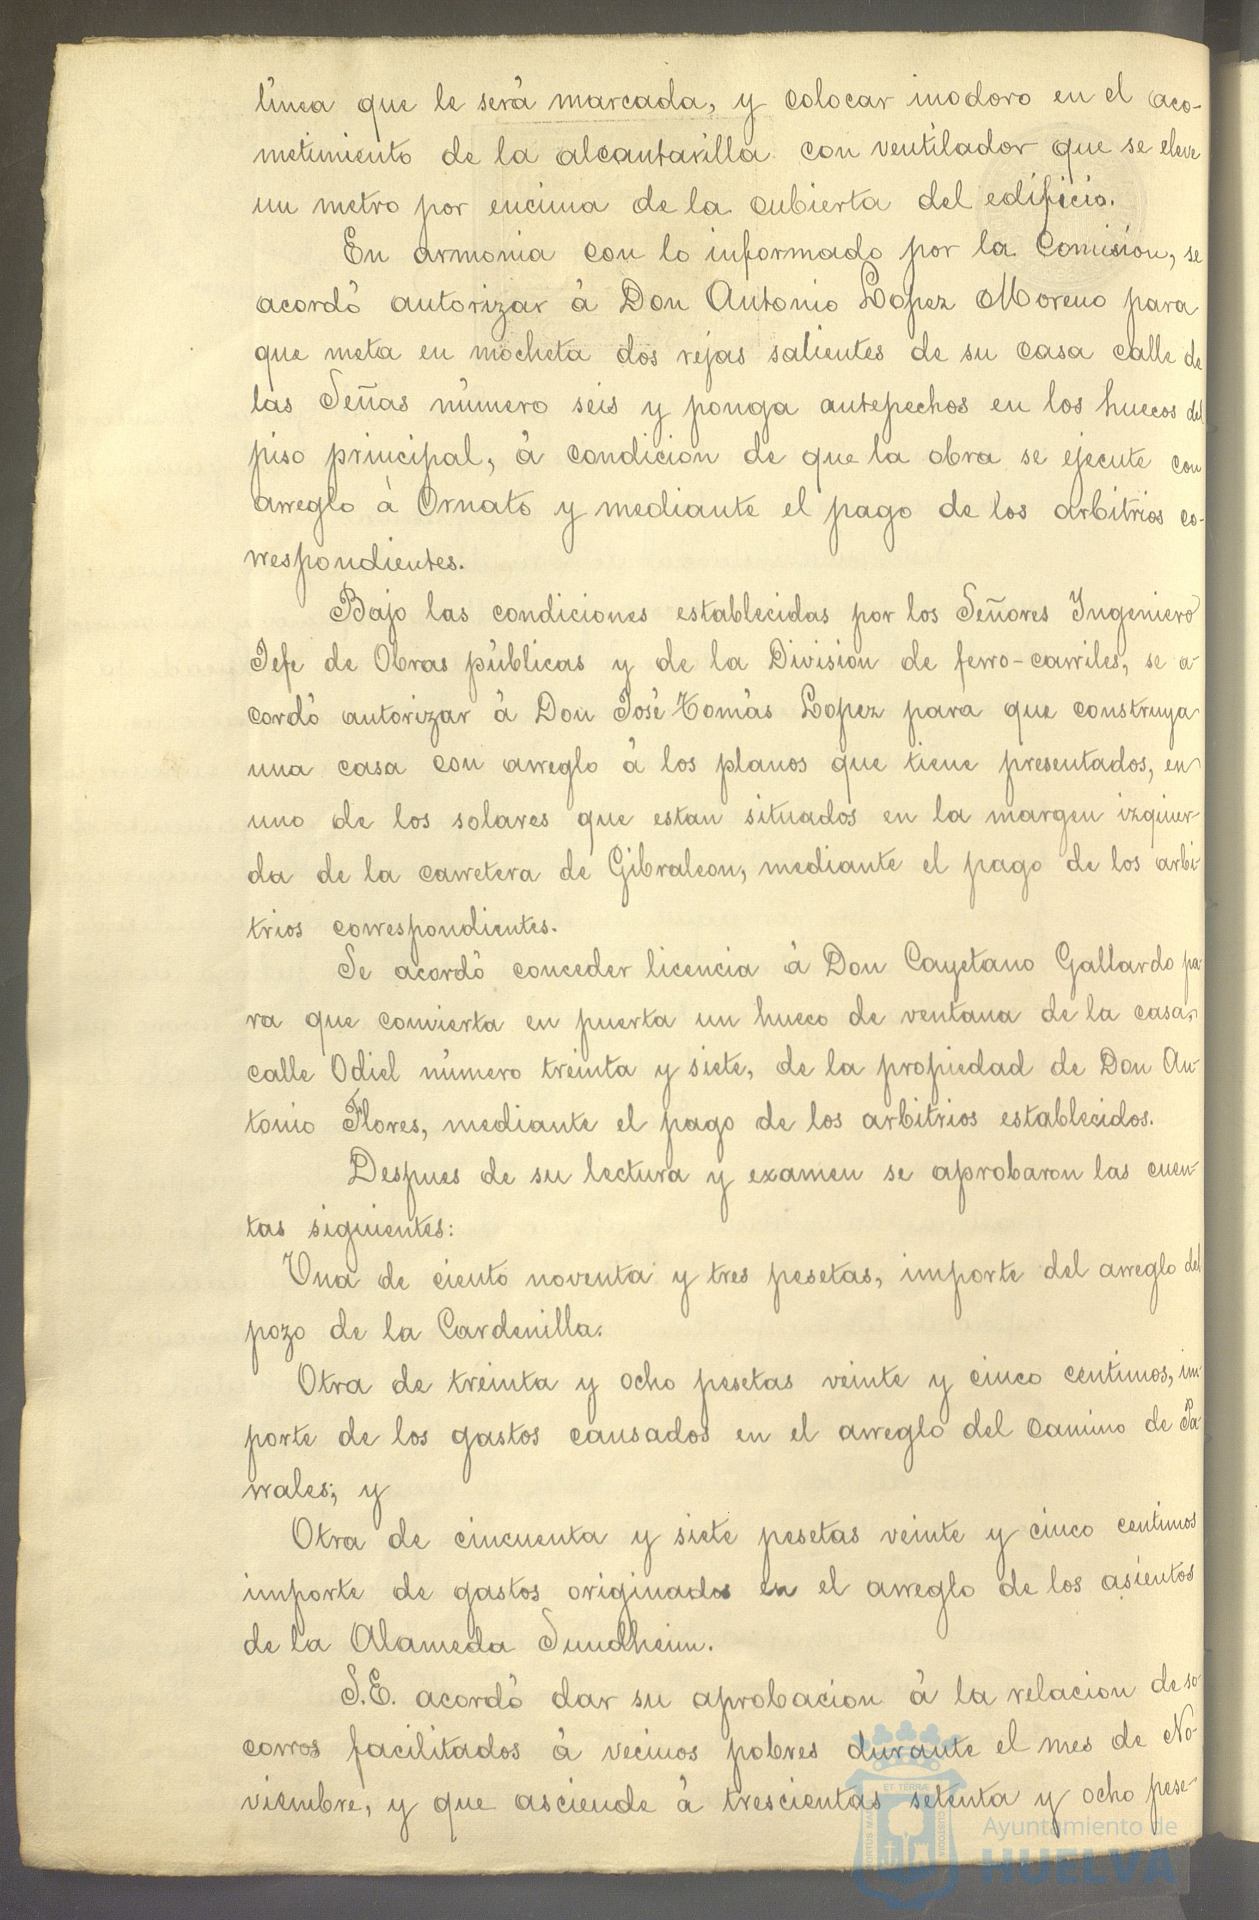 línea que le será marcada, y colocar inodoro en el aco-
metimiento de la alcantarilla con ventilador que se eleve
un metro por encima de la cubierta del edificio.
En armonia con lo informado por la Comision, se
acordó autorizar á Don Antonio Lopez Moreno para
que meta en mocheta dos rejas salientes de su casa calle de
las Señas número seis y ponga antepechos en los huecos del
piso principal, á condicion de que la obra se ejecute con
arreglo á Ornato y mediante el pago de los arbitrios co-
rrespondientes.
Bajo las condiciones establecidas por los Señores Ingeniero
Jefe de Obras públicas y de la Division de ferro-carriles, se a-
cordó autorizar á Don José Tomás Lopez para que construya
una casa con arreglo á los planos que tiene presentados, en
uno de los solares que estan situados en la margen izquier-
da de la carretera de Gibraleon, mediante el pago de los arbi-
trios correspondientes.
Se acordó conceder licencia á Don Cayetano Gallardo pa-
ra que convierta en puerta un hueco de ventana de la casa,
calle Odiel número treinta y siete, de la propiedad de Don An-
tonio Flores, mediante el pago de los arbitrios establecidos.
Despues de su lectura y examen se aprobaron las cuen-
tas siguientes:
Una de ciento noventa y tres pesetas, importe del arreglo del
pozo de la Cardenilla.
Otra de treinta y ocho pesetas veinte y cinco centimos, im-
porte de los gastos causados en el arreglo del camino de Pa-
rrales; y
Otra de cincuenta y siete pesetas veinte y cinco centimos
importe de gastos originados en el arreglo de los asientos
de la Alameda Sundheim.
S.E. acordó dar su aprobacion á la relacion de so-
corros facilitados á vecinos pobres durante el mes de No-
viembre, y que asciende á trescientas setenta y ocho pese-
ET TERRAE
PORTUS MARIS
CUSTODIA
Ayuntamiento de
HUELVA